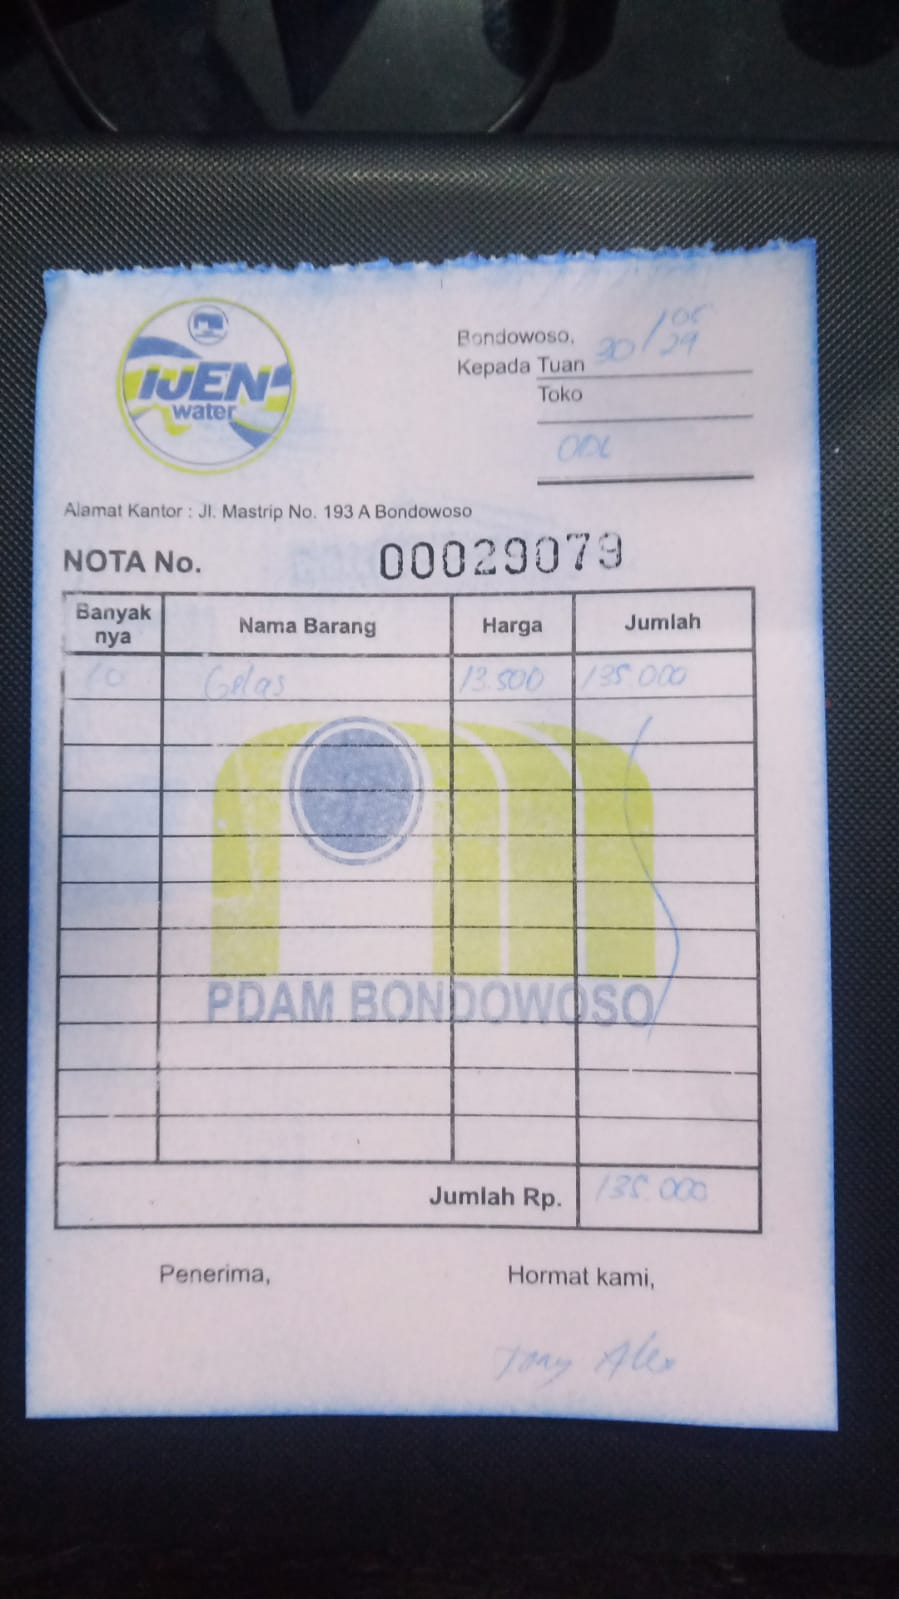 IJEN
water
Bondowoso, 30/05
Kepada Tuan
Toko
Alamat Kantor : Jl. Mastrip No. 193 A Bondowoso
NOTA No. 00029079
Banyak nya Nama Barang Harga Jumlah
10 Gelas 13.500 135.000
PDAM BONDOWOSO
Jumlah Rp. 135.000
Penerima, Hormat kami,
Tony Alex